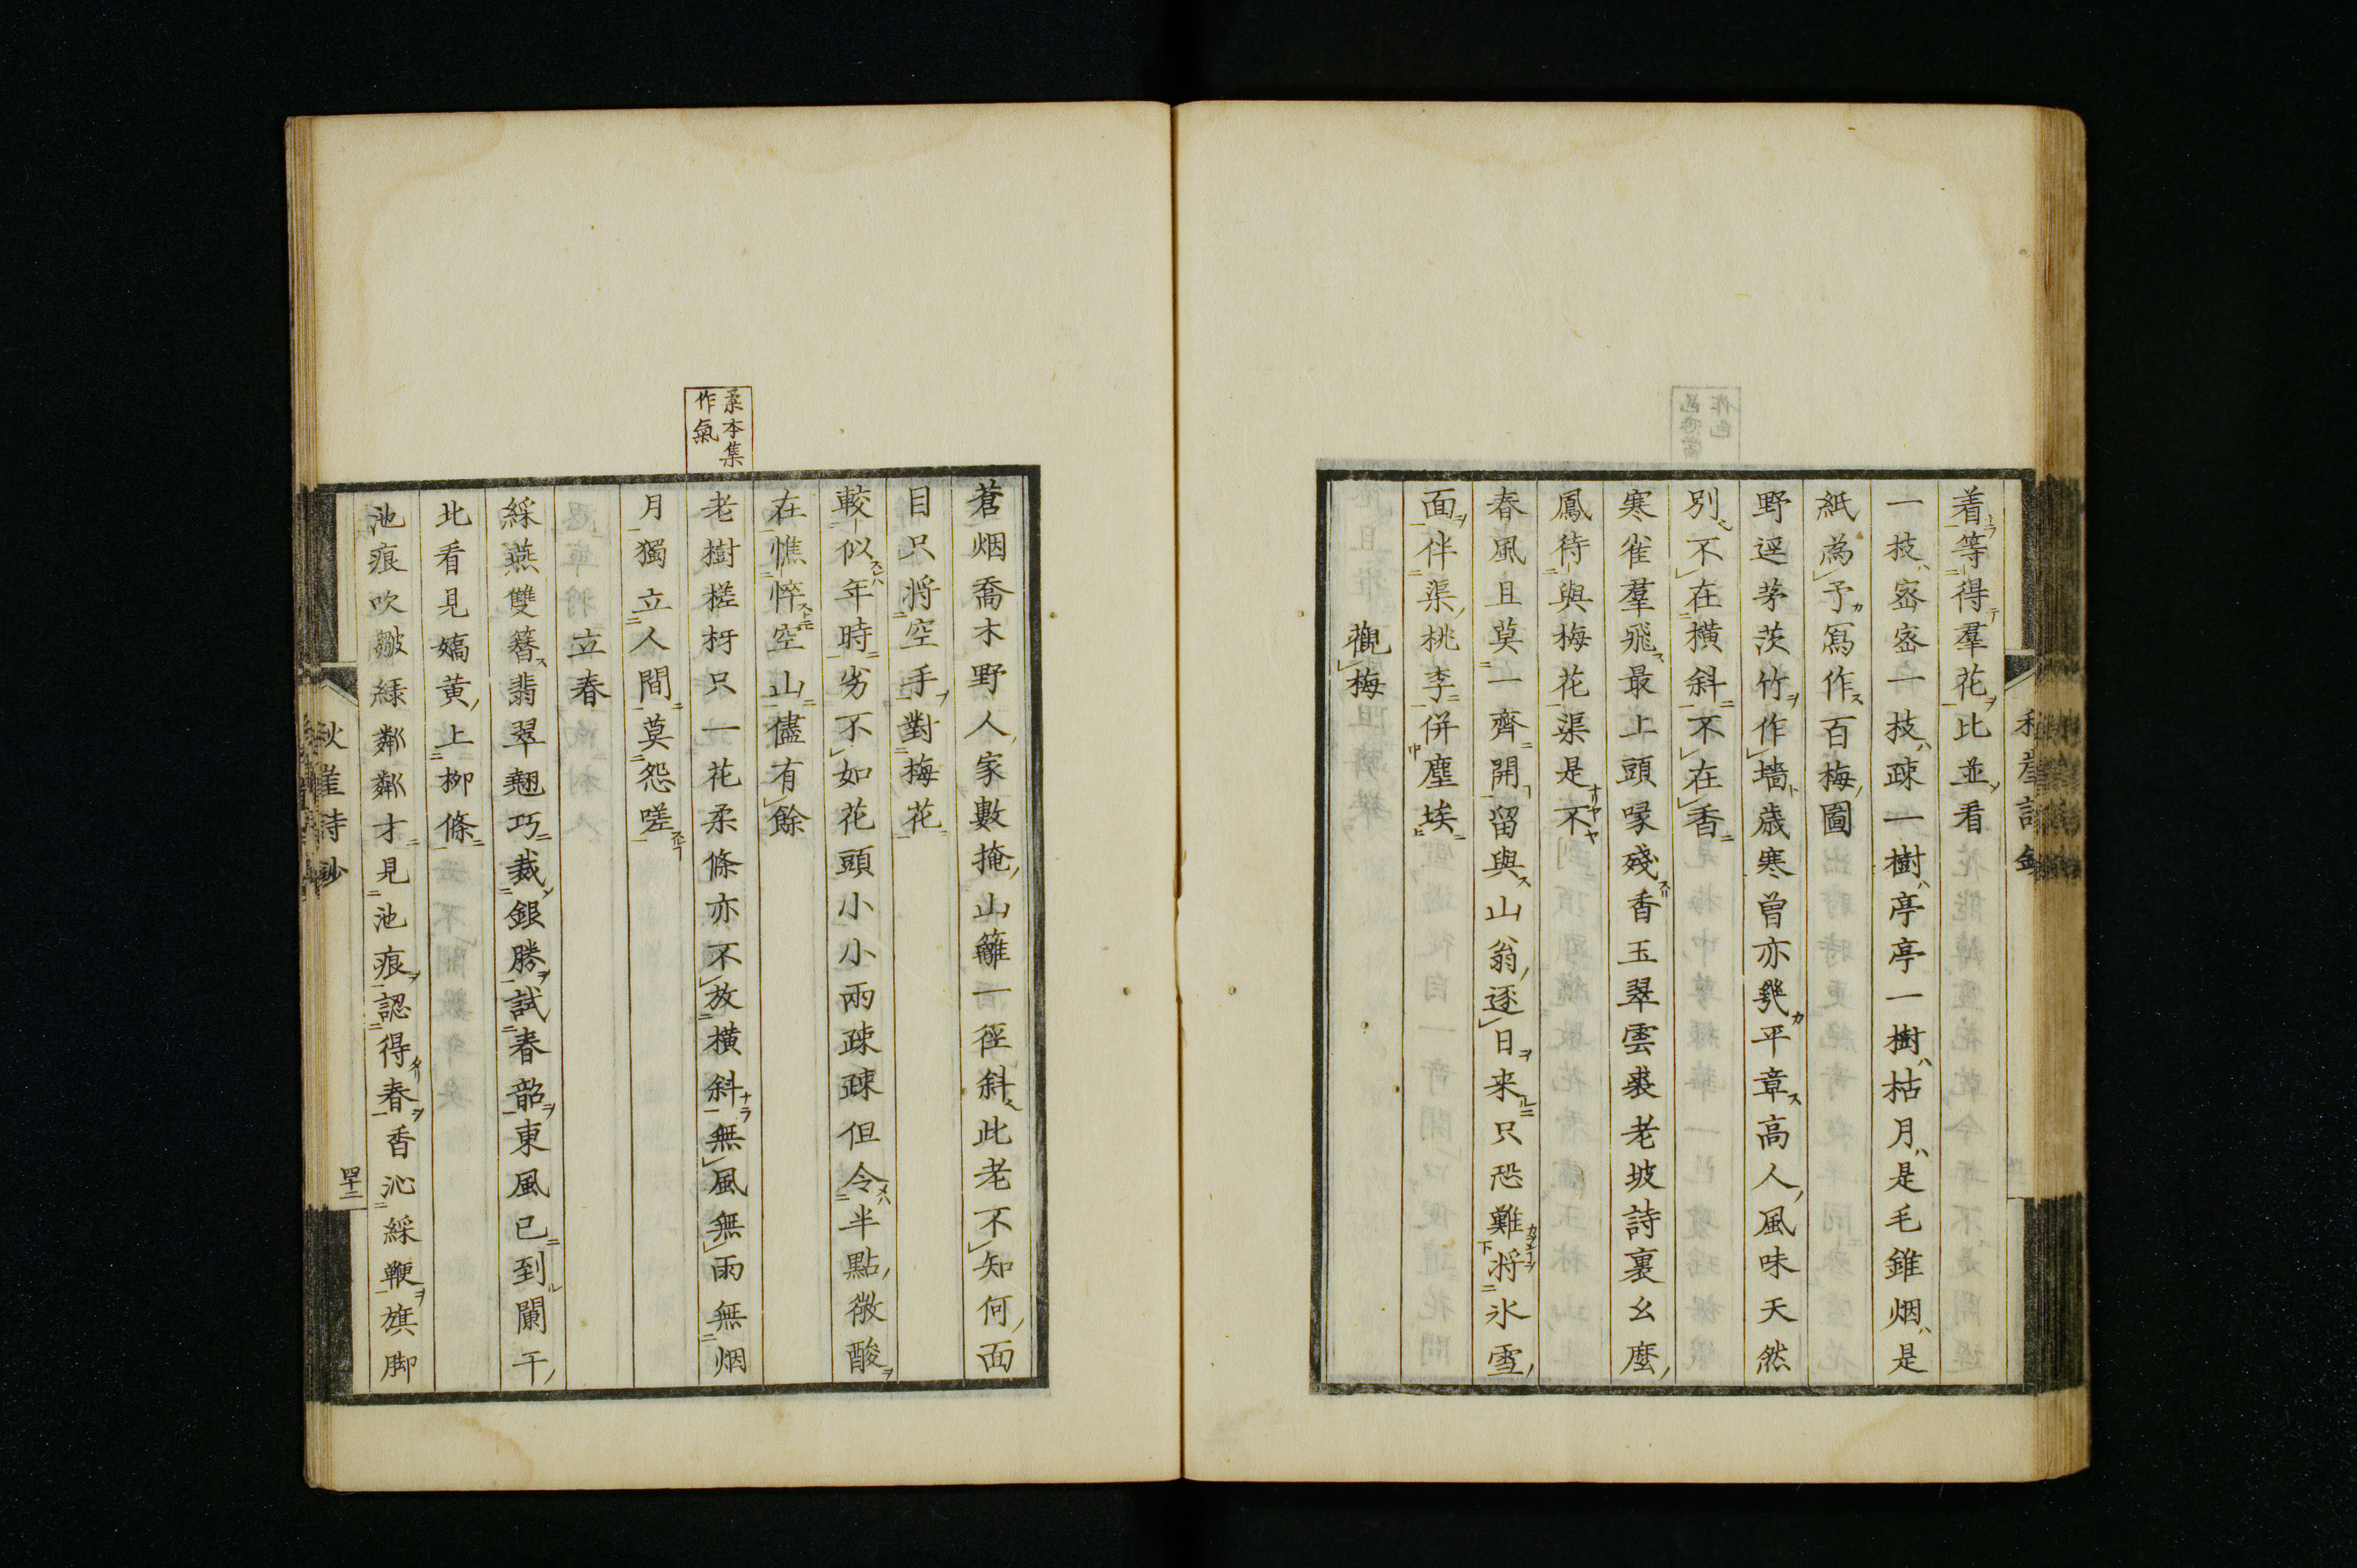 着等得羣花比並看
一技宻宻一技疎一樹亭亭一樹枯月是毛錐烟是
紙為予寫作百梅圖
野逕茅茨竹作墻歳寒曾亦幾平章高人風味天然
別不在横斜不在香
寒雀羣飛最上頭啄殘香玉翠雲裘老坡詩裏幺麽
鳳待與梅花渠是不
春風且莫一齊開留與山翁逐日来只恐難将氷雪
面伴渠桃李併塵埃
觀梅
柔本集
作氣
蒼烟喬木野人家數掩山籬一徑斜此老不知何面
目只将空手對梅花
較似年時劣不如花頭小小兩疎疎但令半點微酸
在憔悴空山儘有餘
老樹槎枒只一花柔條亦不放横斜無風無雨無烟
月獨立人間莫怨嗟
立春
綵燕雙簪翡翠翹巧裁銀勝試春韶東風已到闌干
北看見嬌黄上柳條
池痕吹皺緑粼粼才見池痕認得春香沁綵鞭旗脚
秋崖詩鈔